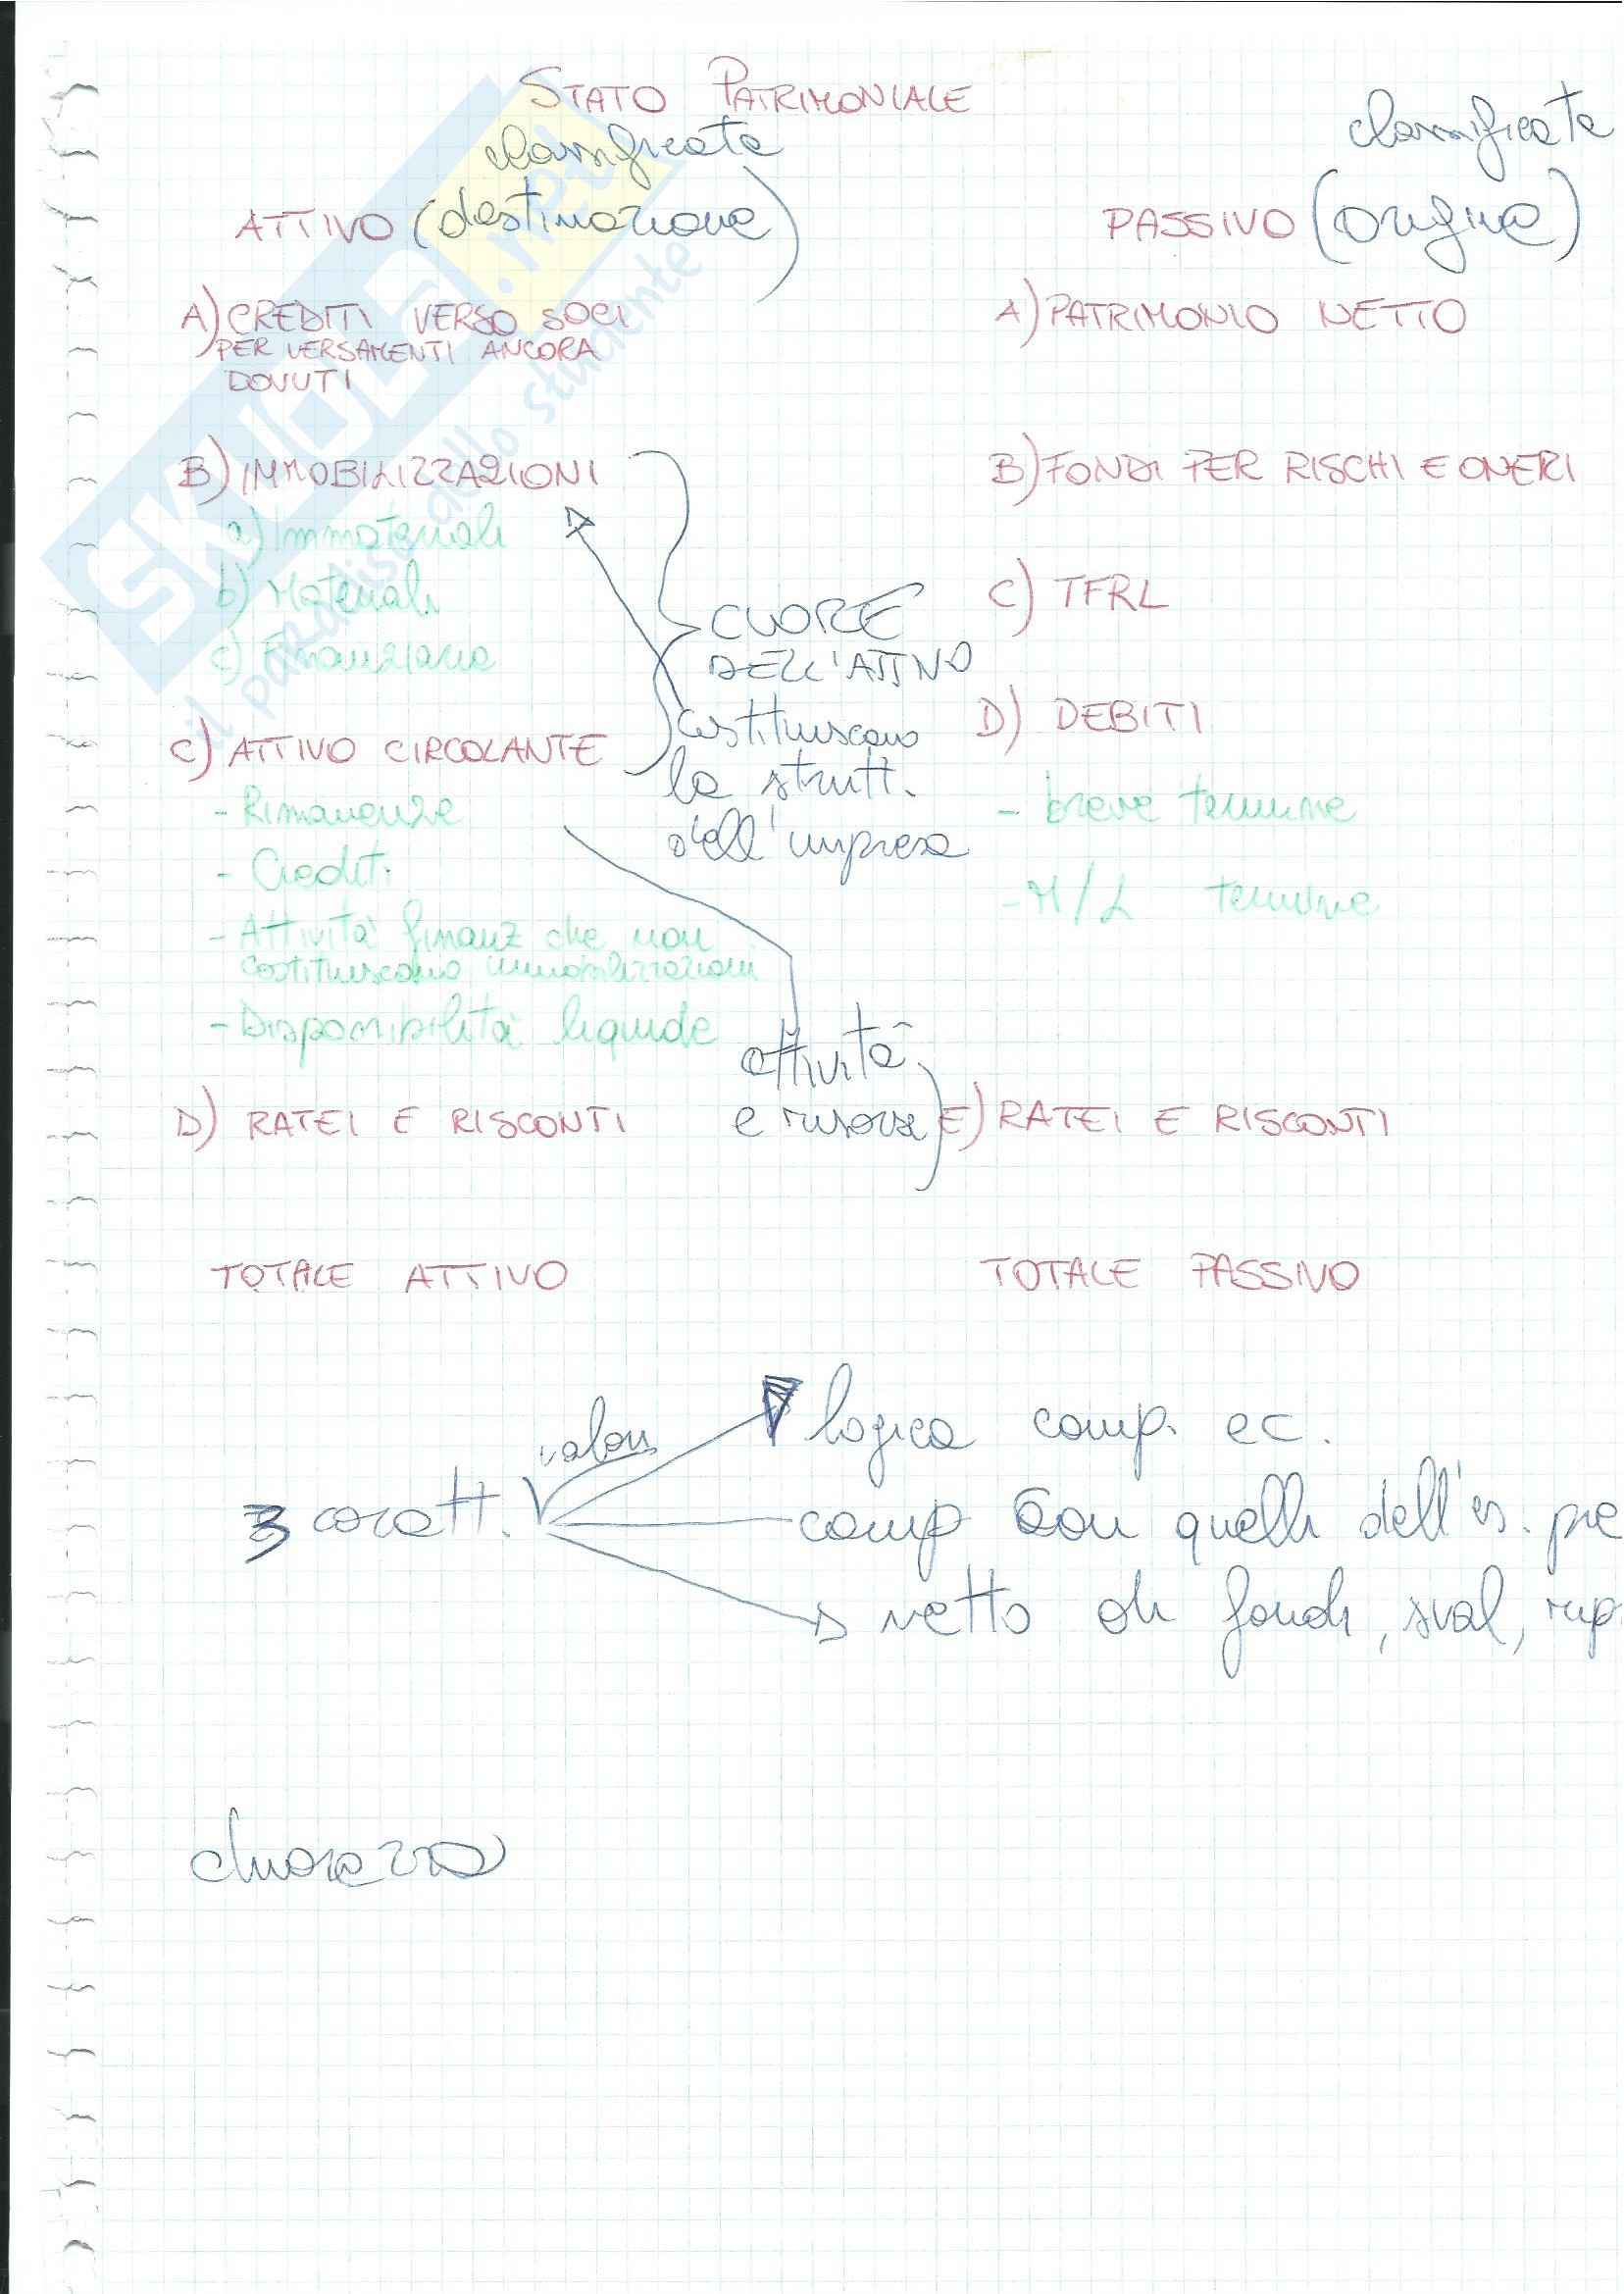 STATO PATRIMONIALE
classificata
classificata
ATTIVO (destinazione)
PASSIVO (origine)
A) CREDITI VERSO SOCI
PER VERSAMENTI ANCORA
DOVUTI
A) PATRIMONIO NETTO
B) IMMOBILIZZAZIONI
a) Immateriali
b) Materiali
c) Finanziarie
B) FONDI PER RISCHI E ONERI
C) TFRL
CUORE
DELL'ATTIVO
costituiscono
la strutt.
dell'impresa
D) DEBITI
- breve termine
- M/L termine
C) ATTIVO CIRCOLANTE
- Rimanenze
- Crediti
- Attività finanz che non
costituiscono immobilizzazioni
- Disponibilità liquide
attività
e risorse
D) RATEI E RISCONTI
E) RATEI E RISCONTI
TOTALE ATTIVO
TOTALE PASSIVO
valori
3 caratt.
logica comp. ec.
comp con quelli dell'es. pre
netto di fondi, sval, rip
chiarezza
SKUOLA.net
il paradiso dello studente